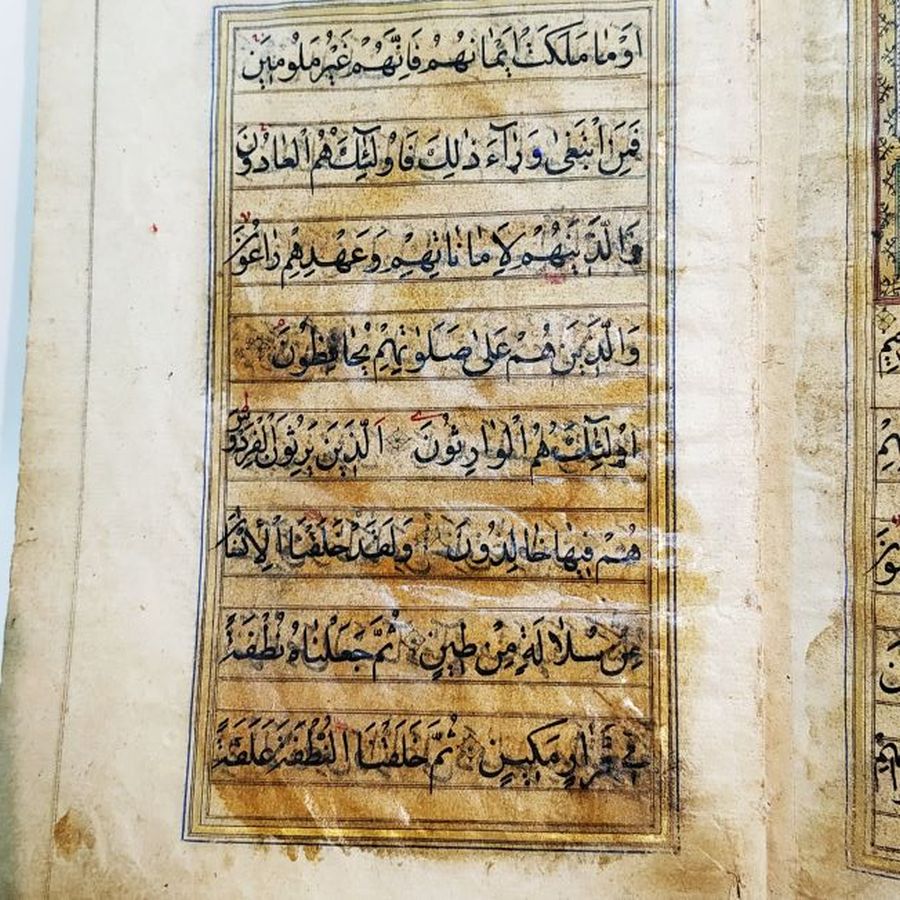 اَوْ مٰا مَلَكَتْ اَيْمٰانُهُمْ فَاِنَّهُمْ غَيْرُ مَلُومٖينَ
فَمَنِ اْبْتَغىٰ وَرٰٓاءَ ذٰلِكَ فَاُولٰٓئِكَ هُمُ الْعٰادُونَ
وَالَّذٖينَ هُمْ لِاَمٰانٰاتِهِمْ وَعَهْدِهِمْ رٰاعُونَ
وَالَّذٖينَ هُمْ عَلىٰ صَلَوٰاتِهِمْ يُحٰافِظُونَ
اُولٰٓئِكَ هُمُ الْوٰارِثُونَ اَلَّذٖينَ يَرِثُونَ الْفِرْدَوْسَ
هُمْ فٖيهٰا خٰالِدُونَ وَلَقَدْ خَلَقْنَا الْاِنْسٰانَ
مِنْ سُلٰالَةٍ مِنْ طٖينٍ ثُمَّ جَعَلْنٰاهُ نُطْفَةً
فٖى قَرٰارٍ مَكٖينٍ ثُمَّ خَلَقْنَا النُّطْفَةَ عَلَقَةً